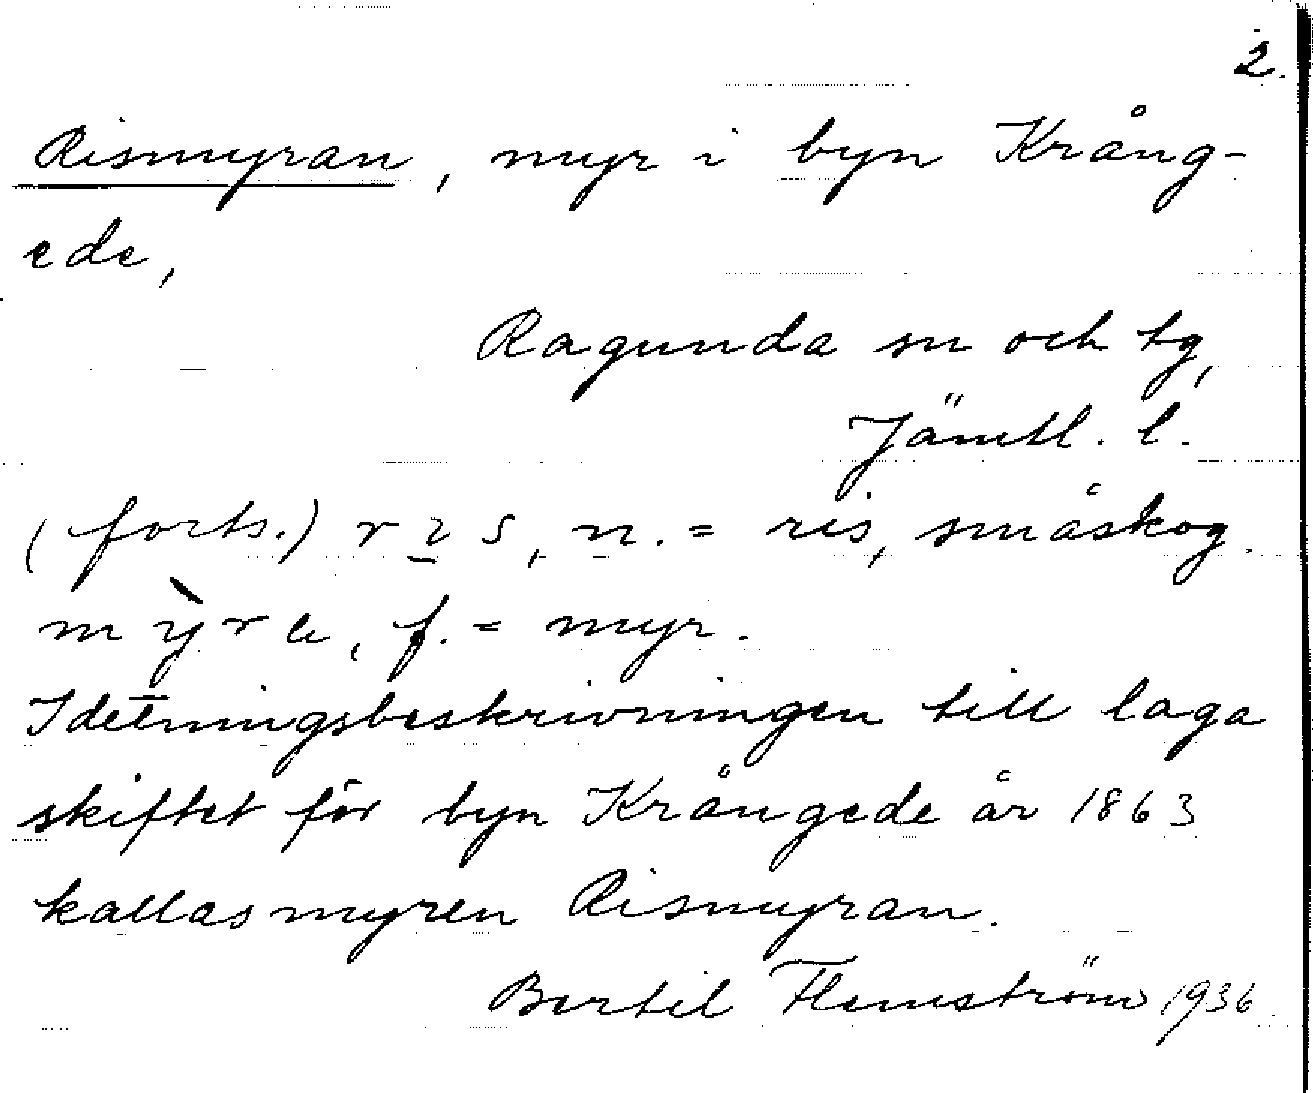 2.
Rismyran, myr i byn Krång-
ede,
Ragunda sn och tg,
Jämtl. l.
(forts.) r ɪ̲ s, n. = ris, småskog.
m ỳ r a, f. = myr.
I delningsbeskrivningen till laga
skiftet för byn Krångede år 1863
kallas myren Rismyran.
Bertil Flemström 1936